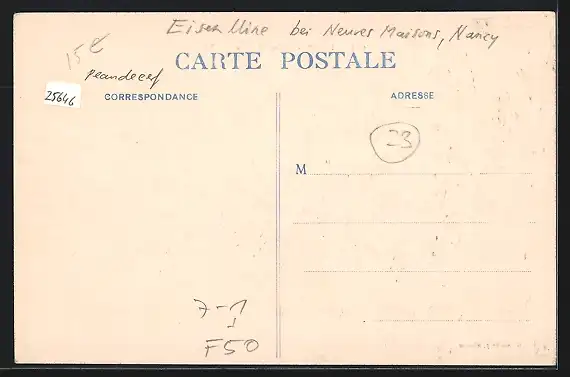 Eisen Mine bei Neuves Maisons, Nancy
15 €
CARTE POSTALE
25646
CORRESPONDANCE
ADRESSE
23
M
7-1
F50